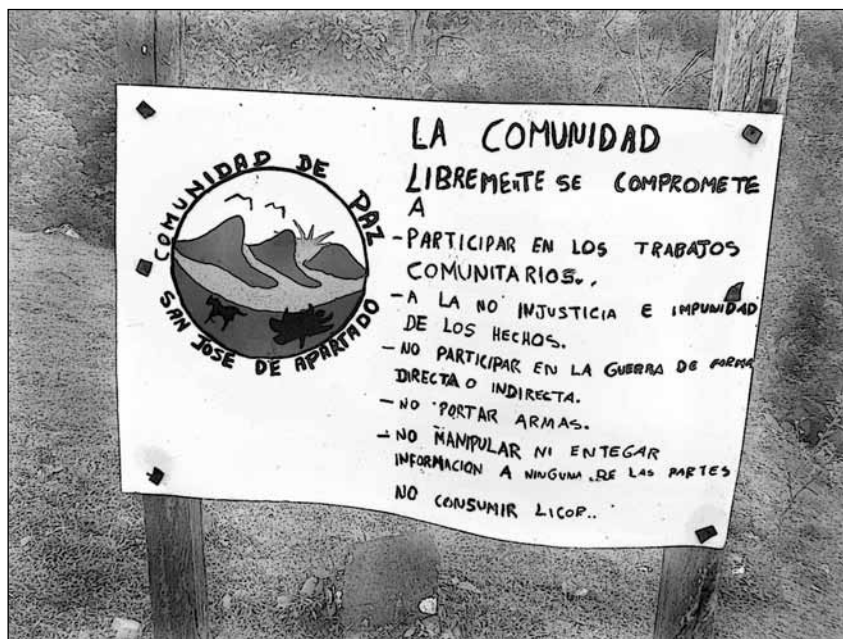 COMUNIDAD DE PAZ
SAN JOSE DE APARTADO
LA COMUNIDAD
LIBREMENTE SE COMPROMETE
A
- PARTICIPAR EN LOS TRABAJOS
COMUNITARIOS..
- A LA NO INJUSTICIA E IMPUNIDAD
DE LOS HECHOS.
- NO PARTICIPAR EN LA GUERRA DE FORMA
DIRECTA O INDIRECTA.
- NO PORTAR ARMAS.
- NO MANIPULAR NI ENTEGAR
INFORMACION A NINGUNA DE LAS PARTES
NO CONSUMIR LICOR..